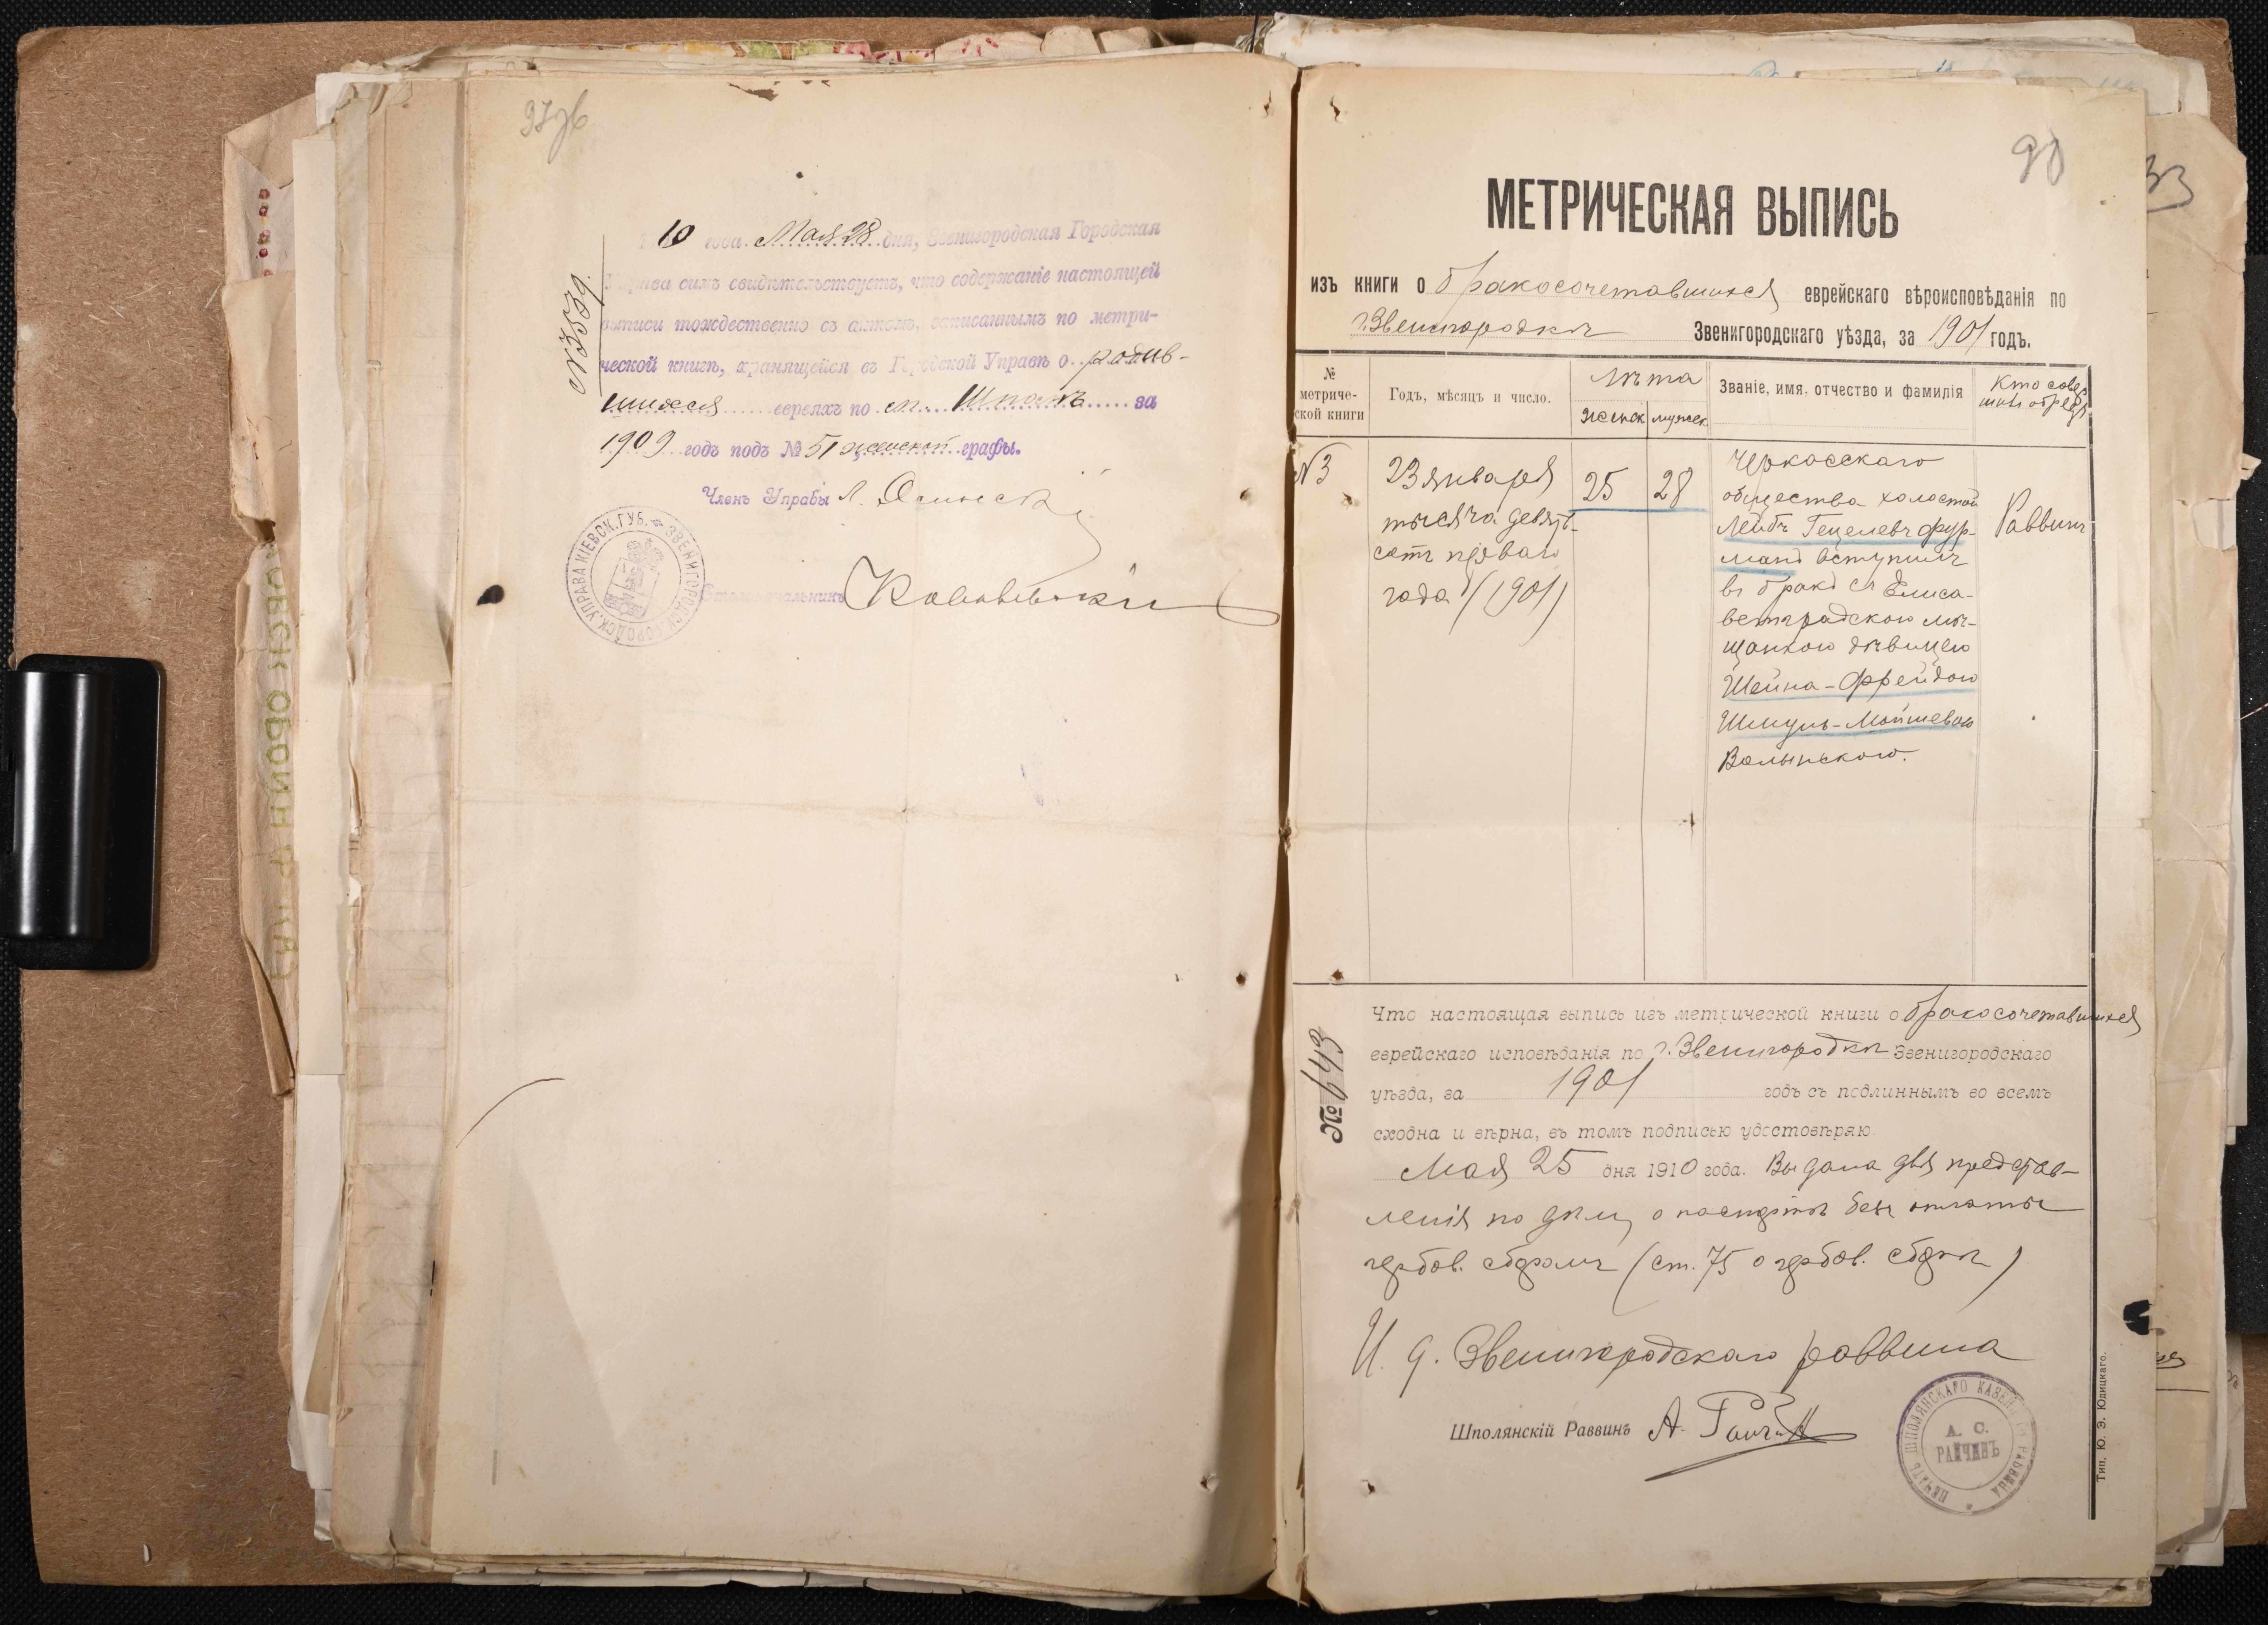 97 об
10 года Мая 28 дня, Звенигородская Городская
Управа симъ свидѣтельствуетъ, что содержаніе настоящей
выписи тождественно съ актомъ, записаннымъ по метри-
ческой книгѣ, хранящейся въ Городской Управѣ о родив-
шихся евреяхъ по м. Шполѣ за
1909 годъ подъ № 51 женской графы.
№3539.
Членъ Управы Л.
Столоначальникъ
ЗВЕНИГОРОДСК. ГОРОДСК. УПРАВА КІЕВСК. ГУБ.
98
МЕТРИЧЕСКАЯ ВЫПИСЬ
изъ книги о бракосочетавшихся еврейскаго вѣроисповѣданія по
г. Звенигородкѣ Звенигородскаго уѣзда, за 1901 годъ.
№ метриче-
ской книги
Годъ, мѣсяцъ и число.
Лѣта
женск. мужск.
Званіе, имя, отчество и фамилія
Кто совер
шилъ обрядъ
№3
23 января
тысяча девять-
сотъ перваго
года (1901)
25 28
Черкасскаго
общества холостой
Лейбъ Гецелевъ Фур-
манъ вступилъ
въ бракъ съ Елиса-
ветградскою мѣ-
щанкою дѣвицею
Шейна-Фрейдою
Шмуль-Мошиевою
Волынскою.
Раввинъ
№ 643
Что настоящая выпись изъ метрической книги о бракосочетавшихся
еврейскаго исповѣданія по г. Звенигородкѣ Звенигородскаго
уѣзда, за 1901 годъ съ подлиннымъ во всемъ
сходна и вѣрна, въ томъ подписью удостовѣряю
Мая 25 дня 1910 года. Выдана для представ-
ленія по дѣлу о наслѣдствѣ безъ оплаты
гербов. сборомъ (ст. 75 о гербов. сборѣ)
И. д. Звенигородскаго раввина
Шполянскій Раввинъ А. Райчинъ
ПЕЧАТЬ ШПОЛЯНСКАГО КАЗЕННАГО РАВВИНА
А. С.
РАЙЧИНЪ
Тип. Ю. Э. Юдицкаго.
33